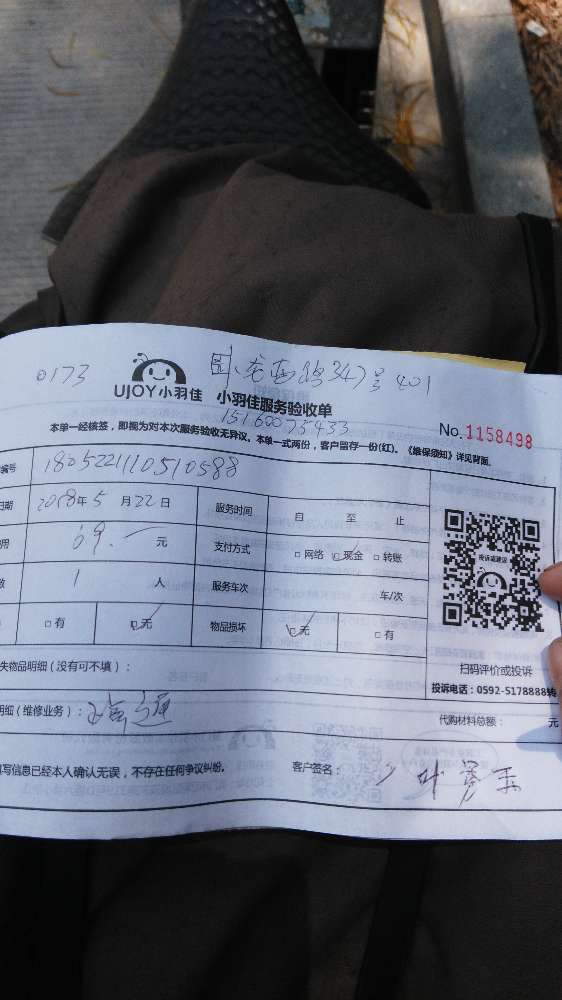 0173
347号401
UJOY小羽佳 小羽佳服务验收单
15160075433
本单一经核签，即视为对本次服务验收无异议。本单一式两份，客户留存一份(红)。《维保须知》详见背面。
No.1158498
编号 1805221110510588
日期 2018年5月22日 服务时间 自 至 止
用 69.— 元 支付方式 □网络 ☑现金 □转账
数 1 人 服务车次 车/次
□有 ☑无 物品损坏 ☑无 □有
投诉或建议
扫码评价或投诉
投诉电话：0592-5178888转
失物品明细（没有可不填）：
明细（维修业务）： 代购材料总额： 元
填写信息已经本人确认无误，不存在任何争议纠纷。 客户签名：